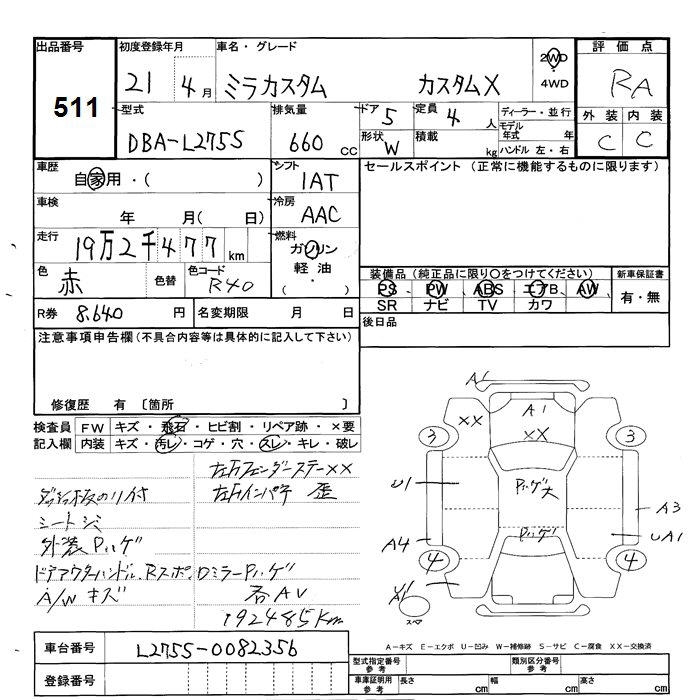 出品番号 初度登録年月 車名・グレード 評価点
511
21 4月 ミラカスタム カスタムX 2WD 4WD RA
型式 排気量 ドア 5 定員 4 人 ディーラー・並行 外装 内装
DBA-L275S 660 cc 形状 W 積載 kg モデル年式 年 C C
ハンドル 左・右
車歴 シフト セールスポイント (正常に機能するものに限ります)
自家用・( ) 1AT
車検 冷房
年 月( 日) AAC
走行 燃料
19万2千477km ガソリン
色 色替 色コード 軽油
赤 R40 ( ・ )
装備品 (純正品に限り○をつけてください) 新車保証書
PS PW ABS エアB AW 有・無
SR ナビ TV カワ
R券 8,640 円 名変期限 月 日 後日品
注意事項申告欄(不具合内容等は具体的に記入して下さい)
修復歴 有 〔箇所 〕
検査員 FW キズ・飛石・ヒビ割・リペア跡・×要
記入欄 内装 キズ・汚レ・コゲ・穴・スレ・キレ・破レ
左フェンダーステーXX
のり付 左インパネ 歪
シート
外装Pハゲ
ドアアウターハンドル、Rスポ、Dミラー Pハゲ
A/W キズ 各AU
192485km
A1
XX A1
XX
3 3
U1 Pハゲ大 A3
Pハゲ UA1
A4
4 4
U1 A1
スペア
A-キズ E-エクボ U-凹み W-補修跡 S-サビ C-腐食 XX-交換済
車台番号 L275S-0082356
登録番号
型式指定番号 参考 類別区分番号 参考
車庫証明用 参考 長さ cm 幅 cm 高さ cm